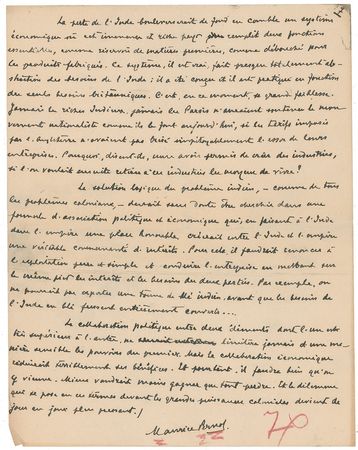 La perte de l'Inde bouleverserait de fond en comble un système
économique où cet immense et riche pays remplit deux fonctions
essentielles, comme réservoir de matières premières, comme débouché pour
les produits fabriqués. Ce système, il est vrai, fait presque totalement abs-
traction des besoins de l'Inde : il a été conçu et il est pratiqué en fonction
des seuls besoins britanniques. C'est, en ce moment, sa grande faiblesse.
Jamais les riches Indiens, jamais les Parsis n'auraient soutenu le mou-
vement nationaliste comme ils le font aujourd'hui, si les tarifs imposés
par l'Angleterre n'avaient pas brisé impitoyablement l'essor de leurs
entreprises. Pourquoi, disent-ils, nous avoir permis de créer des industries,
si l'on voulait ensuite retirer à ces industries les moyens de vivre ?
La solution logique du problème indien, – comme de tous
les problèmes coloniaux, – devrait sans doute être cherchée dans une
formule d'association politique et économique qui, en faisant à l'Inde
dans l'empire une place honorable, créerait entre l'Inde et l'empire
une véritable communauté d'intérêts. Pour cela, il faudrait renoncer à
l'exploitation pure et simple et conduire l'entreprise en mettant sur
le même pied les intérêts et les besoins des deux parties. Par exemple, on
ne pourrait pas exporter une tonne de blé indien avant que les besoins de
l'Inde en blé fussent entièrement couverts...
La collaboration politique entre deux éléments dont l'un est
très supérieur à l'autre, ne limitera jamais d'une ma-
nière sensible les pouvoirs du premier. Mais la collaboration économique
réduirait terriblement ses bénéfices. Et pourtant, il faudra bien qu'on
y vienne. Mieux vaudrait moins gagner que tout perdre. Et le dilemme
que se pose en ces termes devant les grandes puissances coloniales devient de
jour en jour plus pressant !
Maurice